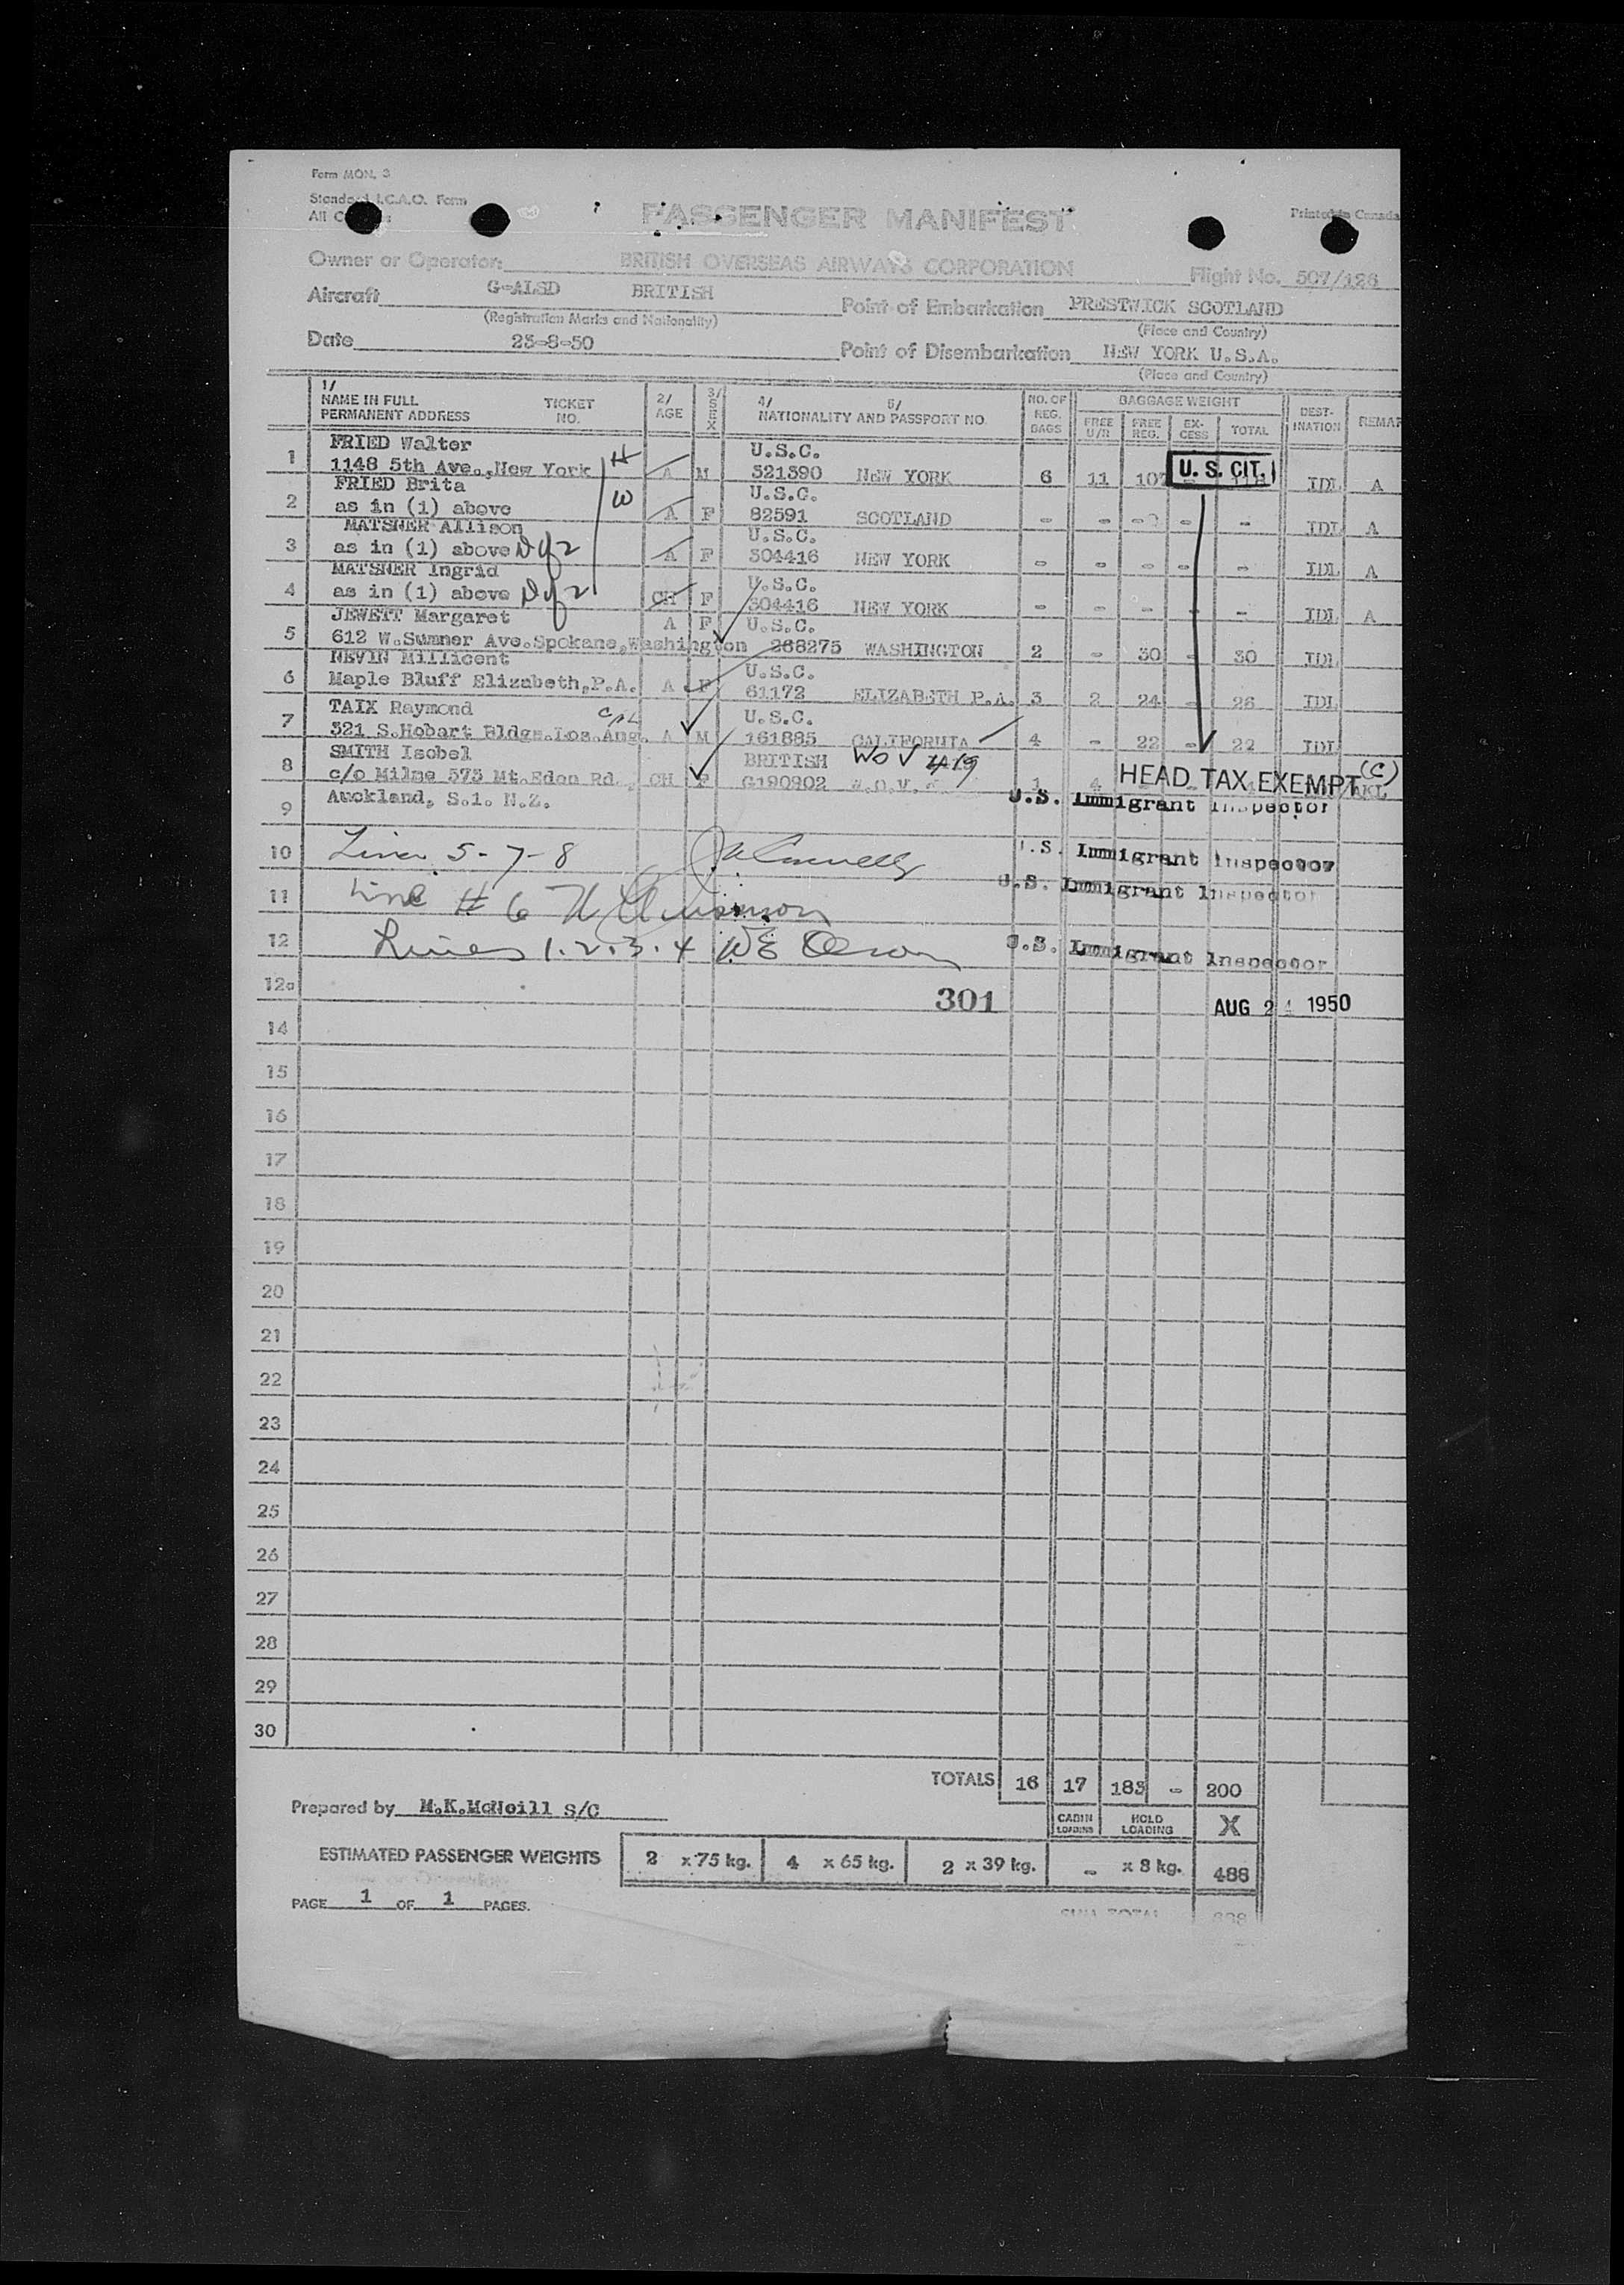 Form MON. 3
Standard I.C.A.O. Form
All
PASSENGER MANIFEST
Printed in Canada
Owner or Operator: BRITISH OVERSEAS AIRWAYS CORPORATION Flight No. 507/126
Aircraft G-ALSD BRITISH Point of Embarkation PRESTWICK SCOTLAND
(Registration Marks and Nationality) (Place and Country)
Date 23-8-50 Point of Disembarkation NEW YORK U.S.A.
(Place and Country)
1/ NAME IN FULL PERMANENT ADDRESS TICKET NO. 2/ AGE 3/ SEX 4/ 5/ NATIONALITY AND PASSPORT NO. NO. OF REG. BAGS BAGGAGE WEIGHT FREE U/R FREE REG. EX-CESS TOTAL DEST-INATION REMAR
FRIED Walter U.S.C.
1 1148 5th Ave.,New York H A M 321390 NEW YORK 6 11 107 - U.S. CIT. IDL A
FRIED Brita W U.S.C.
2 as in (1) above A F 82591 SCOTLAND - - - - - IDL A
MATSNER Allison U.S.C.
3 as in (1) above A F 304416 NEW YORK - - - - - IDL A
MATSNER Ingrid U.S.C.
4 as in (1) above CH F 304416 NEW YORK - - - - - IDL A
JEWETT Margaret A F U.S.C.
5 612 W.Sumner Ave.Spokane,Washington 268275 WASHINGTON 2 - 30 - 30 IDL
NEVIN Millicent U.S.C.
6 Maple Bluff Elizabeth,P.A. A F 61172 ELIZABETH P.A. 3 2 24 - 26 IDL
TAIX Raymond U.S.C.
7 321 S.Hobart Bldgs.Los.Ang. A M 161885 CALIFORNIA 4 - 22 - 22 IDL
SMITH Isobel BRITISH WOV 4/19
8 c/o Milne 575 Mt.Eden Rd. CH F G190902 W.O.V. 1 4 HEAD TAX EXEMPT (C) AKL
9 Auckland, S.1. N.Z. U.S. Immigrant Inspector
10 Lines 5-7-8 U.S. Immigrant Inspector
11 Line # 6 U.S. Immigrant Inspector
12 Lines 1.2.3.4 WE Olson U.S. Immigrant Inspector
12a 301 AUG 24 1950
14
15
16
17
18
19
20
21
22
23
24
25
26
27
28
29
30
TOTALS 16 17 183 - 200
Prepared by M.K.McNeill S/C CABIN LOADING HOLD LOADING X
ESTIMATED PASSENGER WEIGHTS 2 x 75 kg. 4 x 65 kg. 2 x 39 kg. - x 8 kg. 488
PAGE 1 OF 1 PAGES.
SUB TOTAL